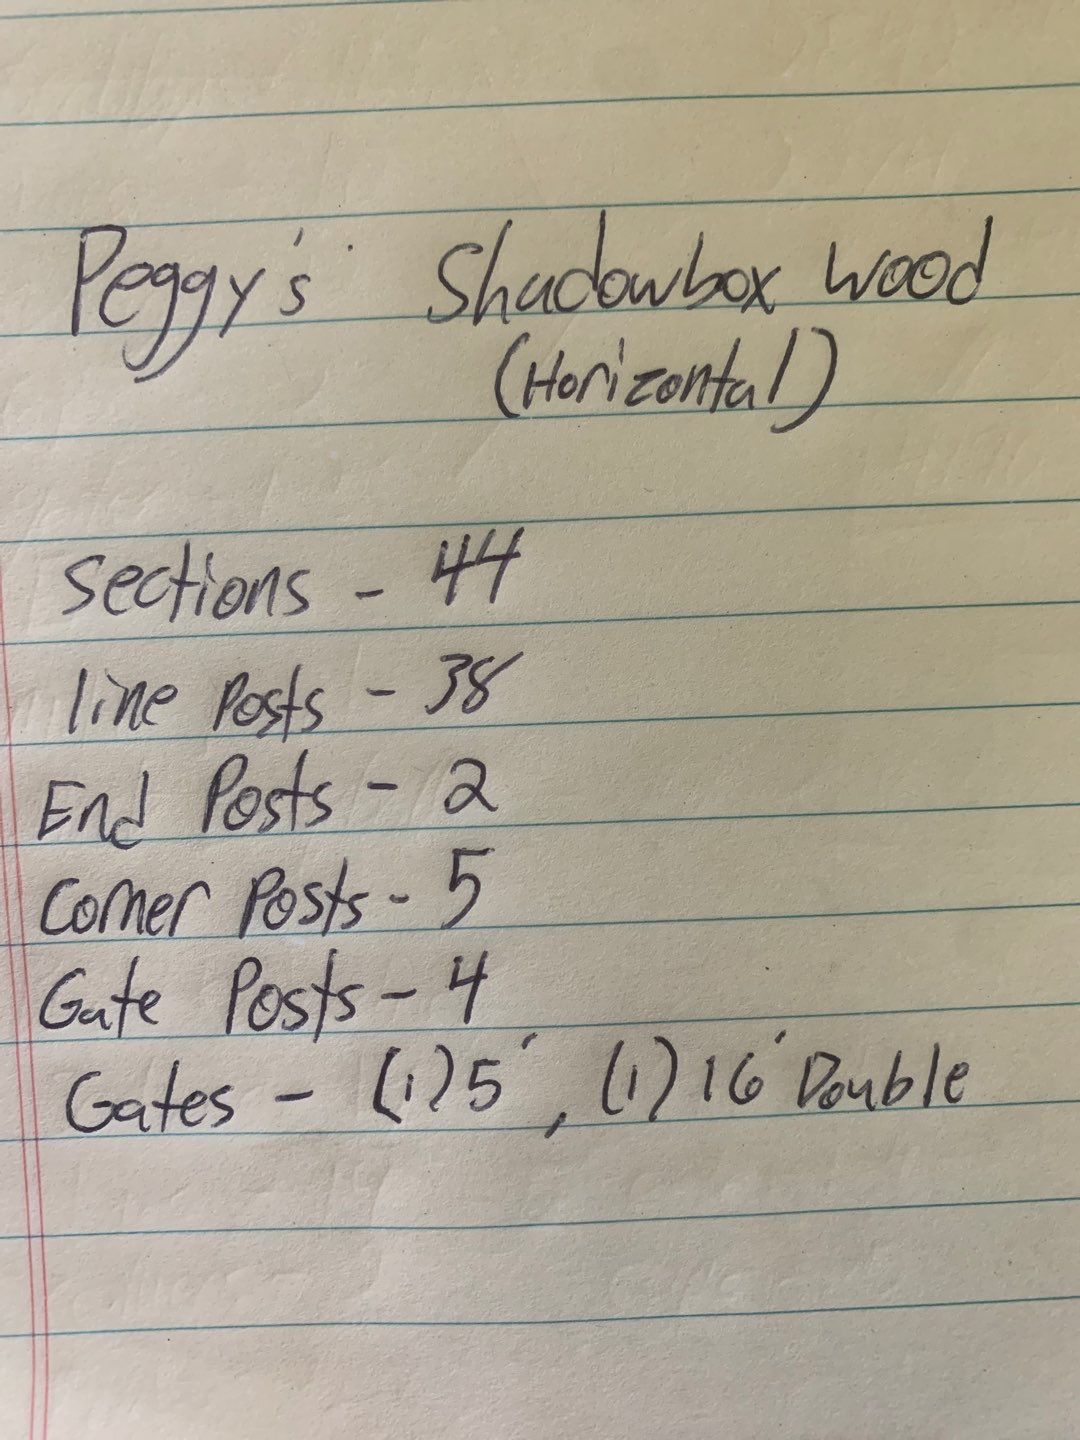 Peggy's Shadowbox wood
(Horizontal)
Sections - 44
line Posts - 38
End Posts - 2
Corner Posts - 5
Gate Posts - 4
Gates - (1) 5', (1) 16' Double